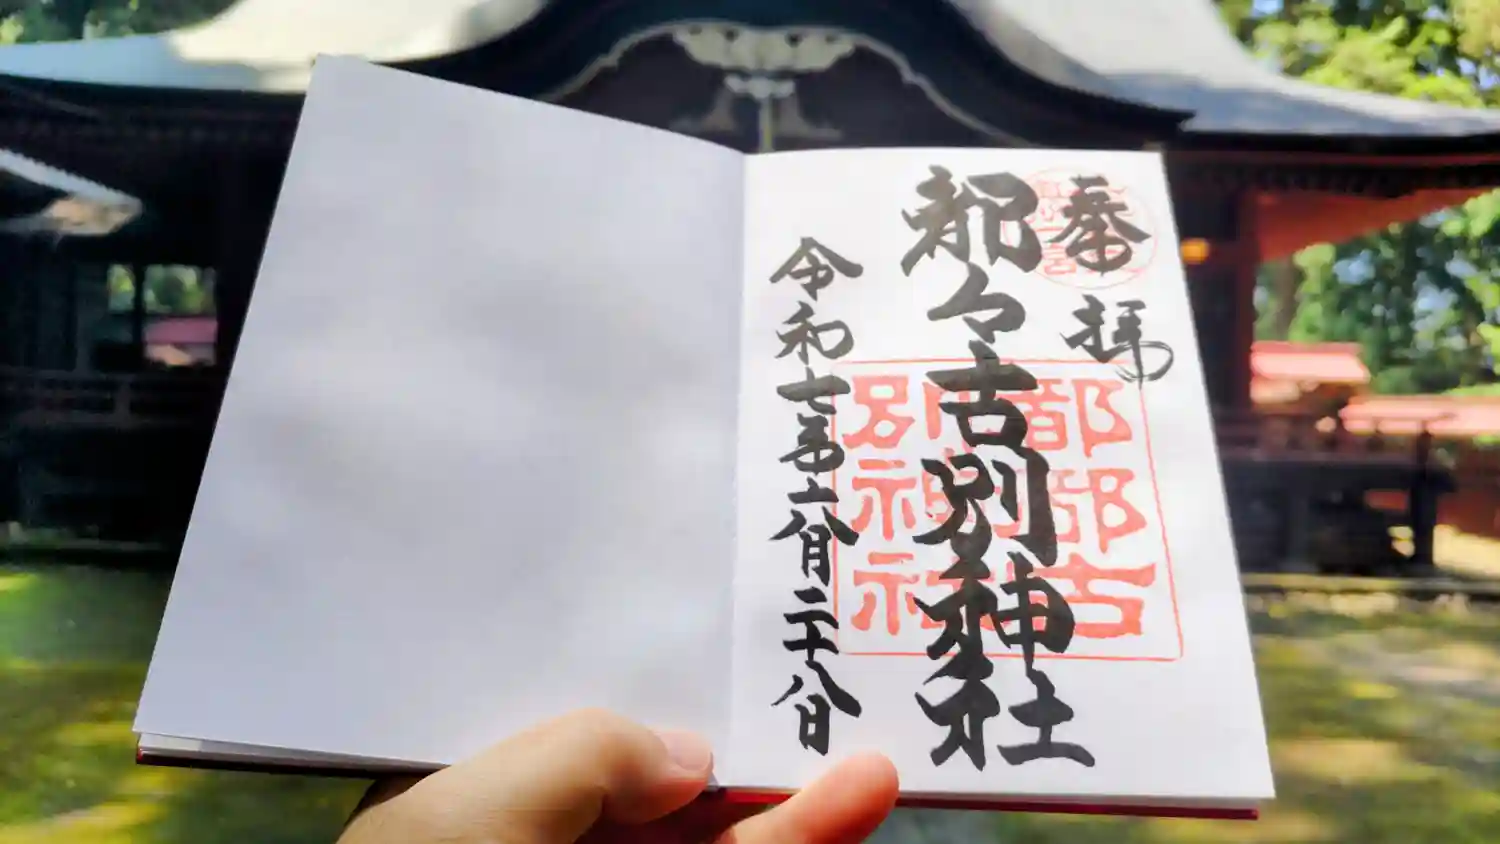 奉拝
都々古別神社
都都古
別神社
令和七年六月二十八日